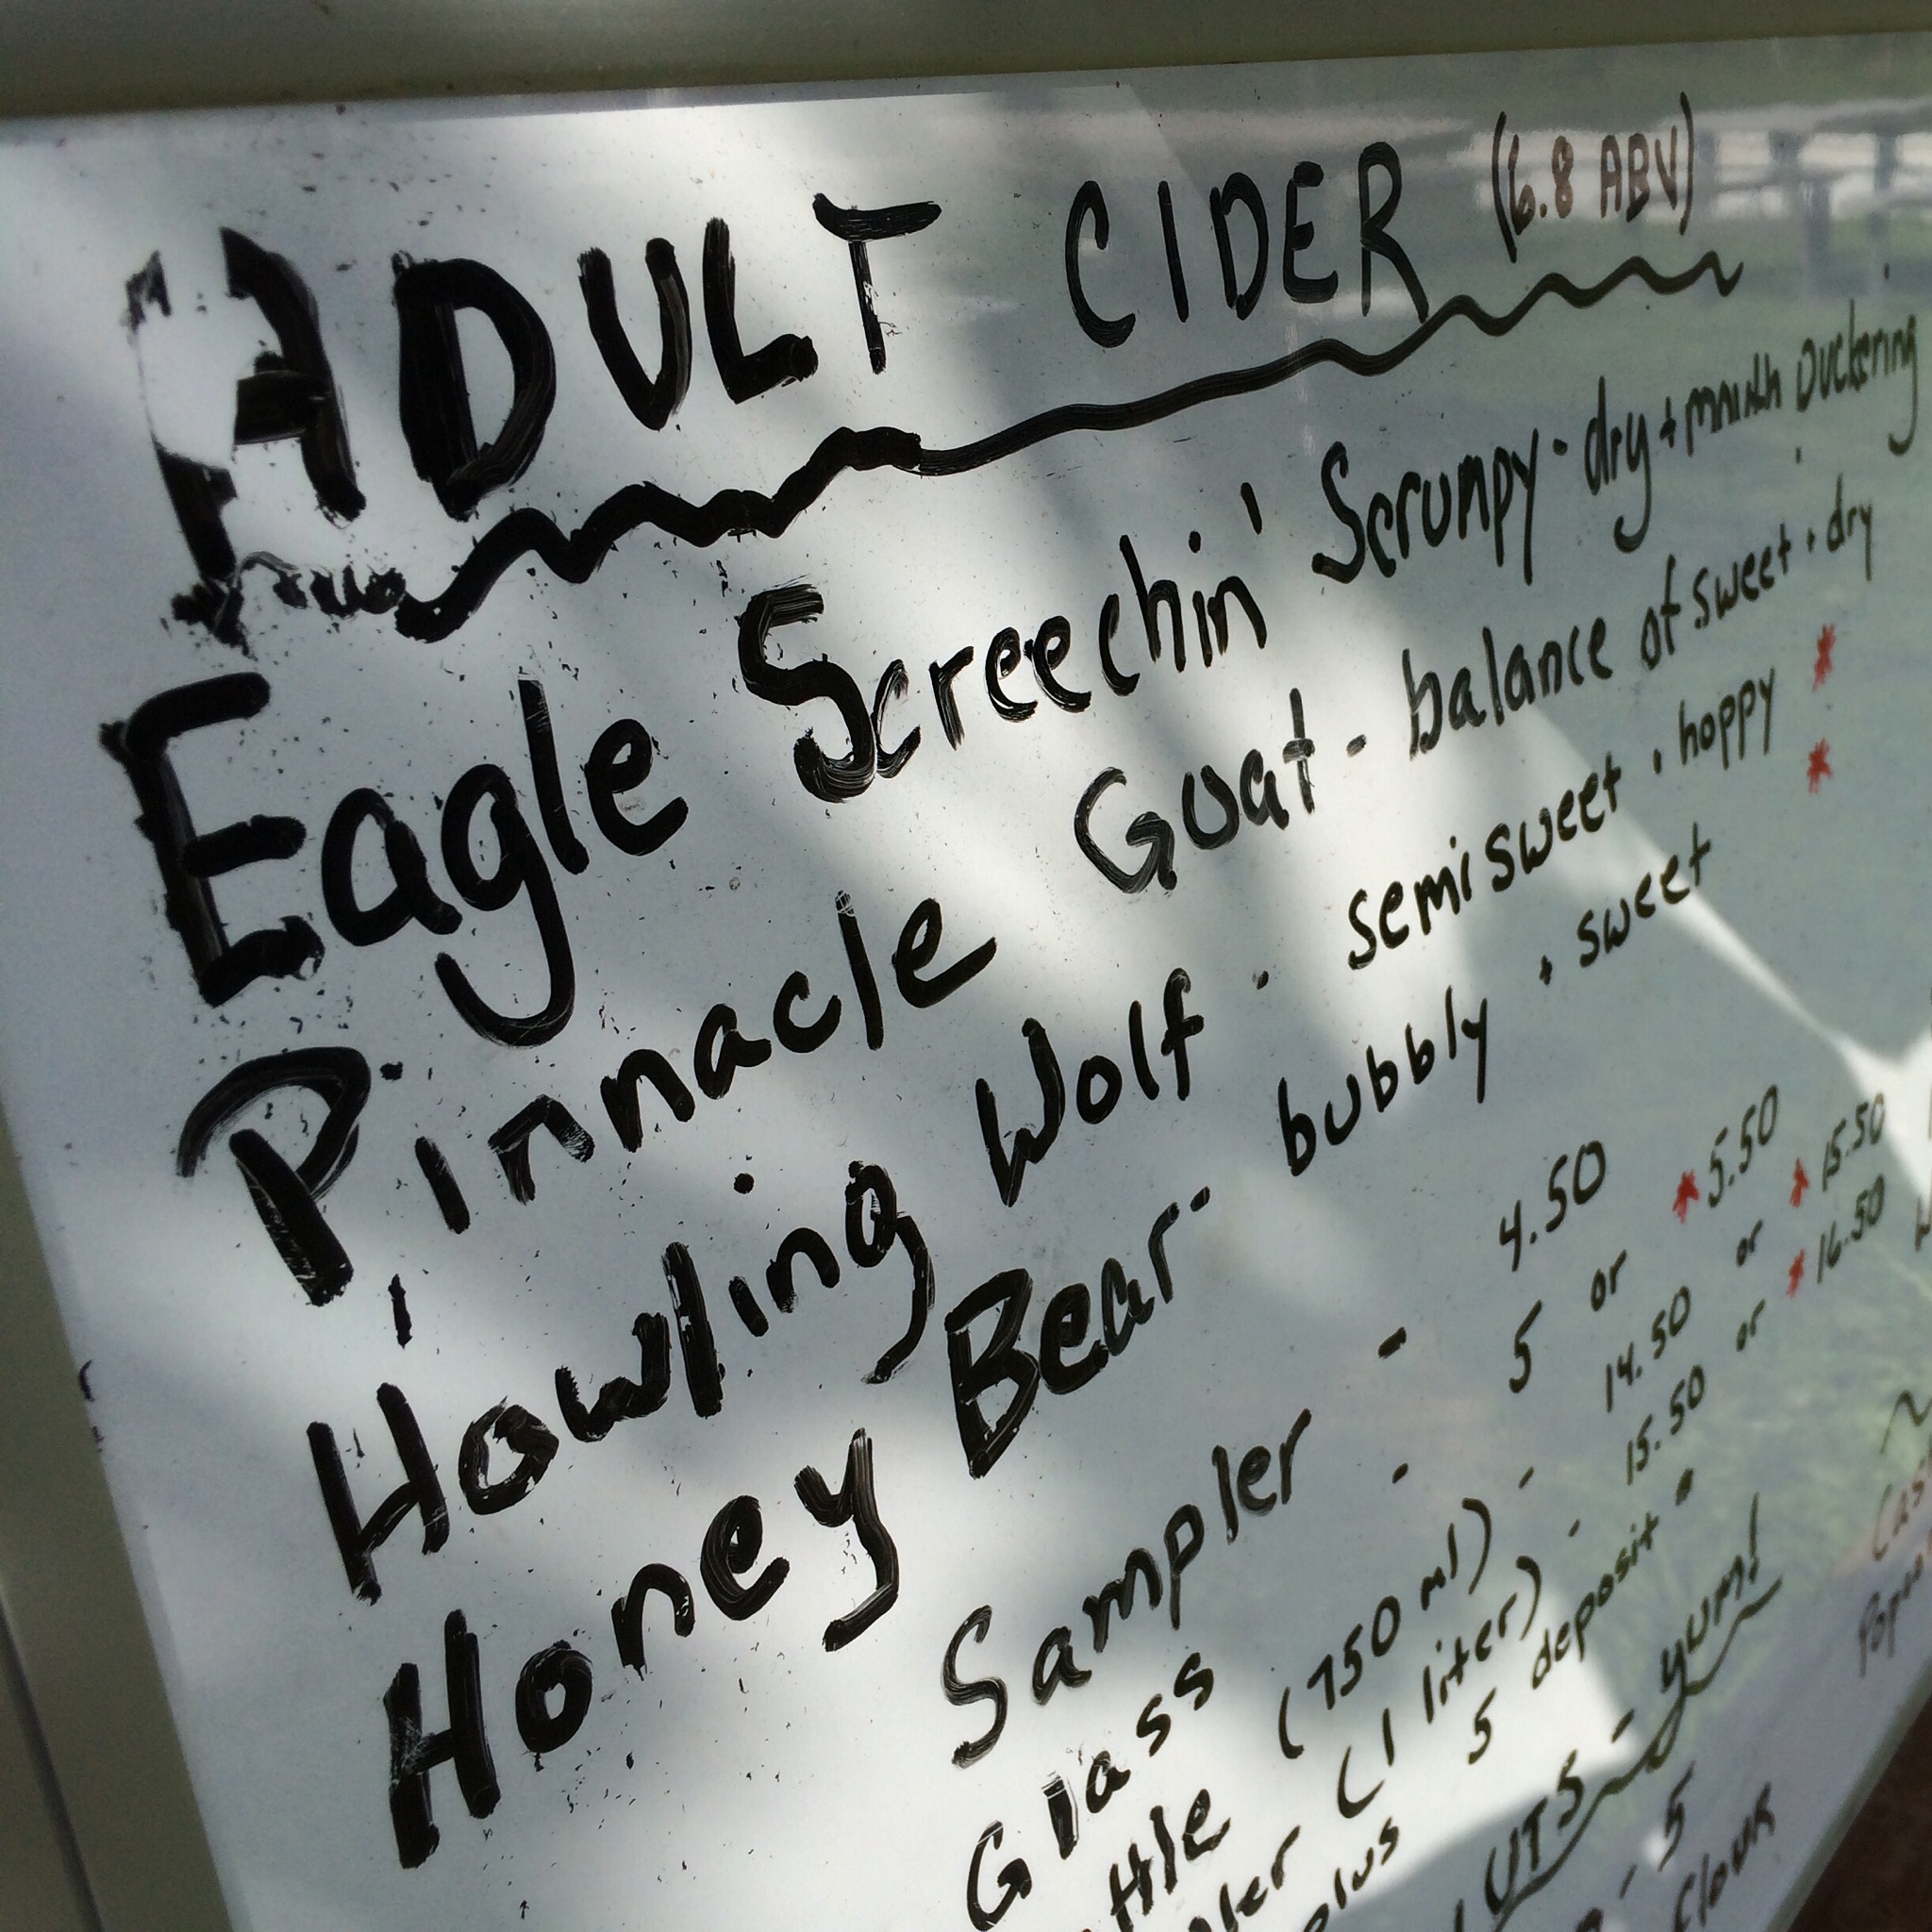 ADULT CIDER (6.8 ABV)
Eagle Screechin' Scrumpy - dry + mouth puckering
Pinnacle Goat - balance of sweet + dry
Howling Wolf - semi sweet + hoppy *
Honey Bear - bubbly + sweet *
Sampler - 4.50
Glass - 5 or *5.50
ttle (750 ml) - 14.50 or *15.50
ler (1 liter) - 15.50 or *16.50
plus 5 deposit
UTS - yum!
- 5
flour